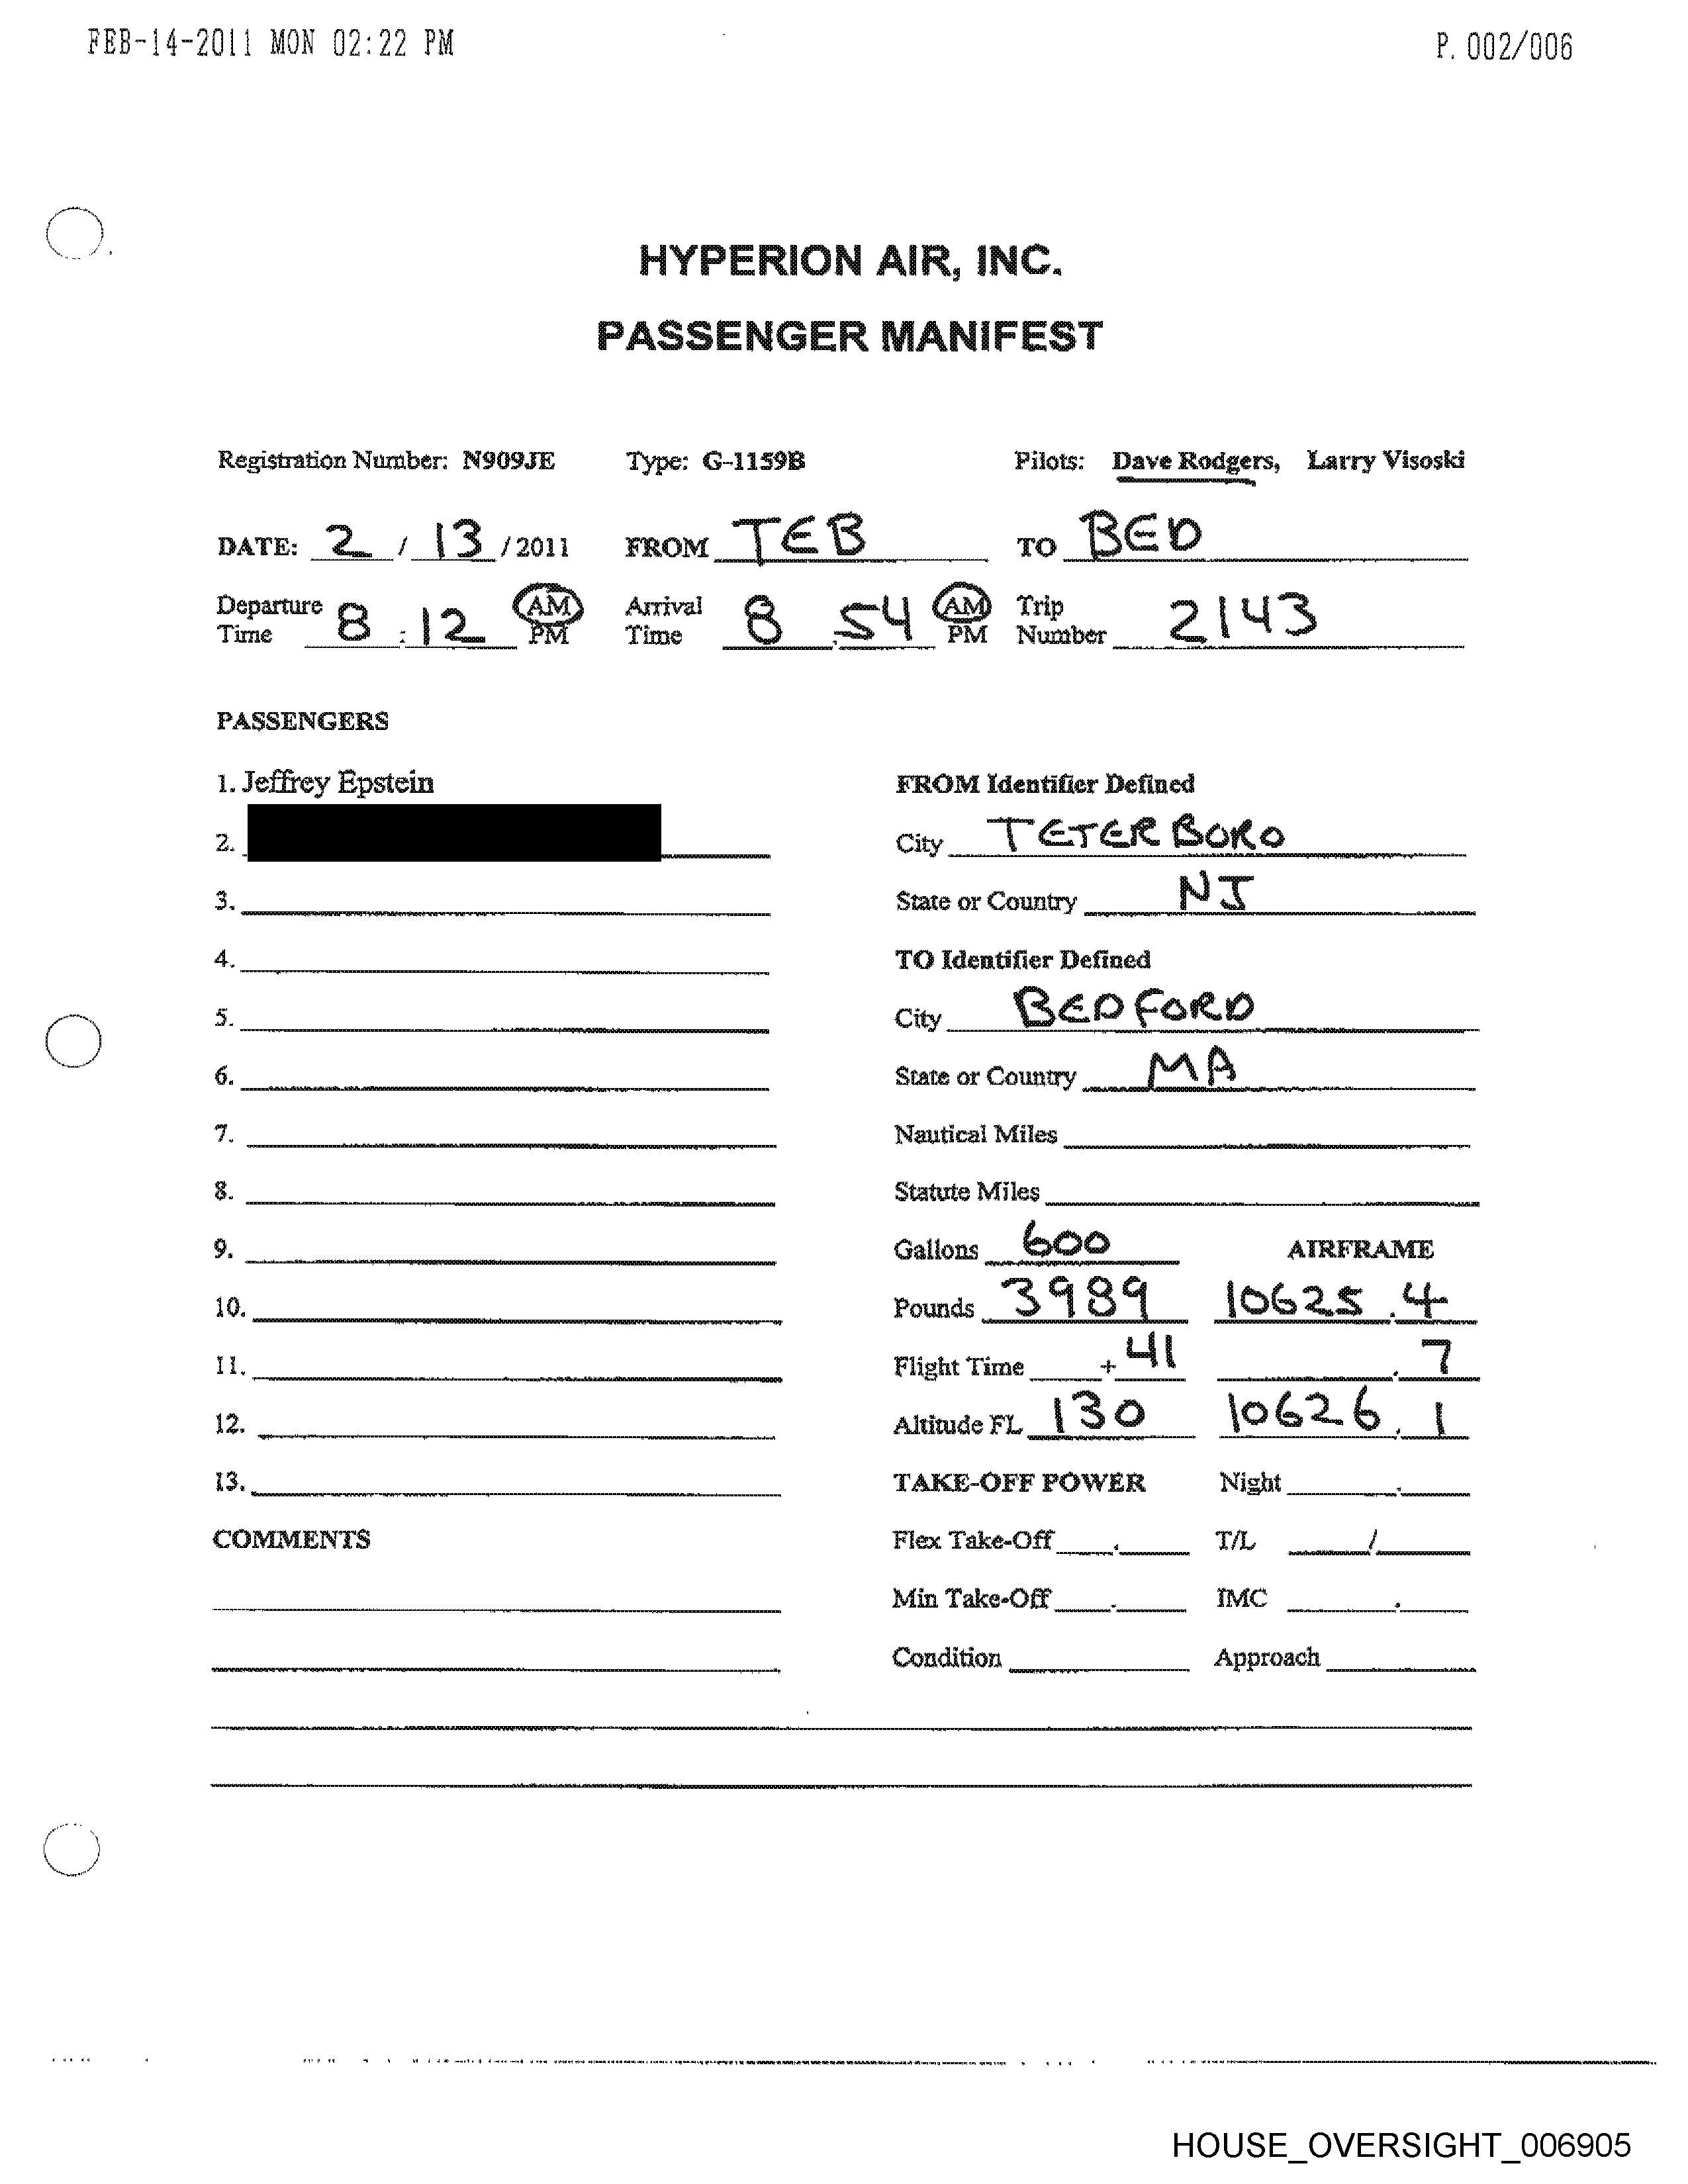 FEB-14-2011 MON 02:22 PM P. 002/006
HYPERION AIR, INC.
PASSENGER MANIFEST
Registration Number: N909JE Type: G-1159B Pilots: Dave Rodgers, Larry Visoski
DATE: 2 / 13 / 2011 FROM TEB TO BED
Departure Time 8 : 12 AM PM Arrival Time 8 : 54 AM PM Trip Number 2143
PASSENGERS
1. Jeffrey Epstein FROM Identifier Defined
2. City TETERBORO
3. State or Country NJ
4. TO Identifier Defined
5. City BEDFORD
6. State or Country MA
7. Nautical Miles
8. Statute Miles
9. Gallons 600 AIRFRAME
10. Pounds 3989 10625.4
11. Flight Time + 41 .7
12. Altitude FL 130 10626.1
13. TAKE-OFF POWER Night .
COMMENTS Flex Take-Off . T/L /
Min Take-Off . IMC .
Condition Approach
HOUSE_OVERSIGHT_006905